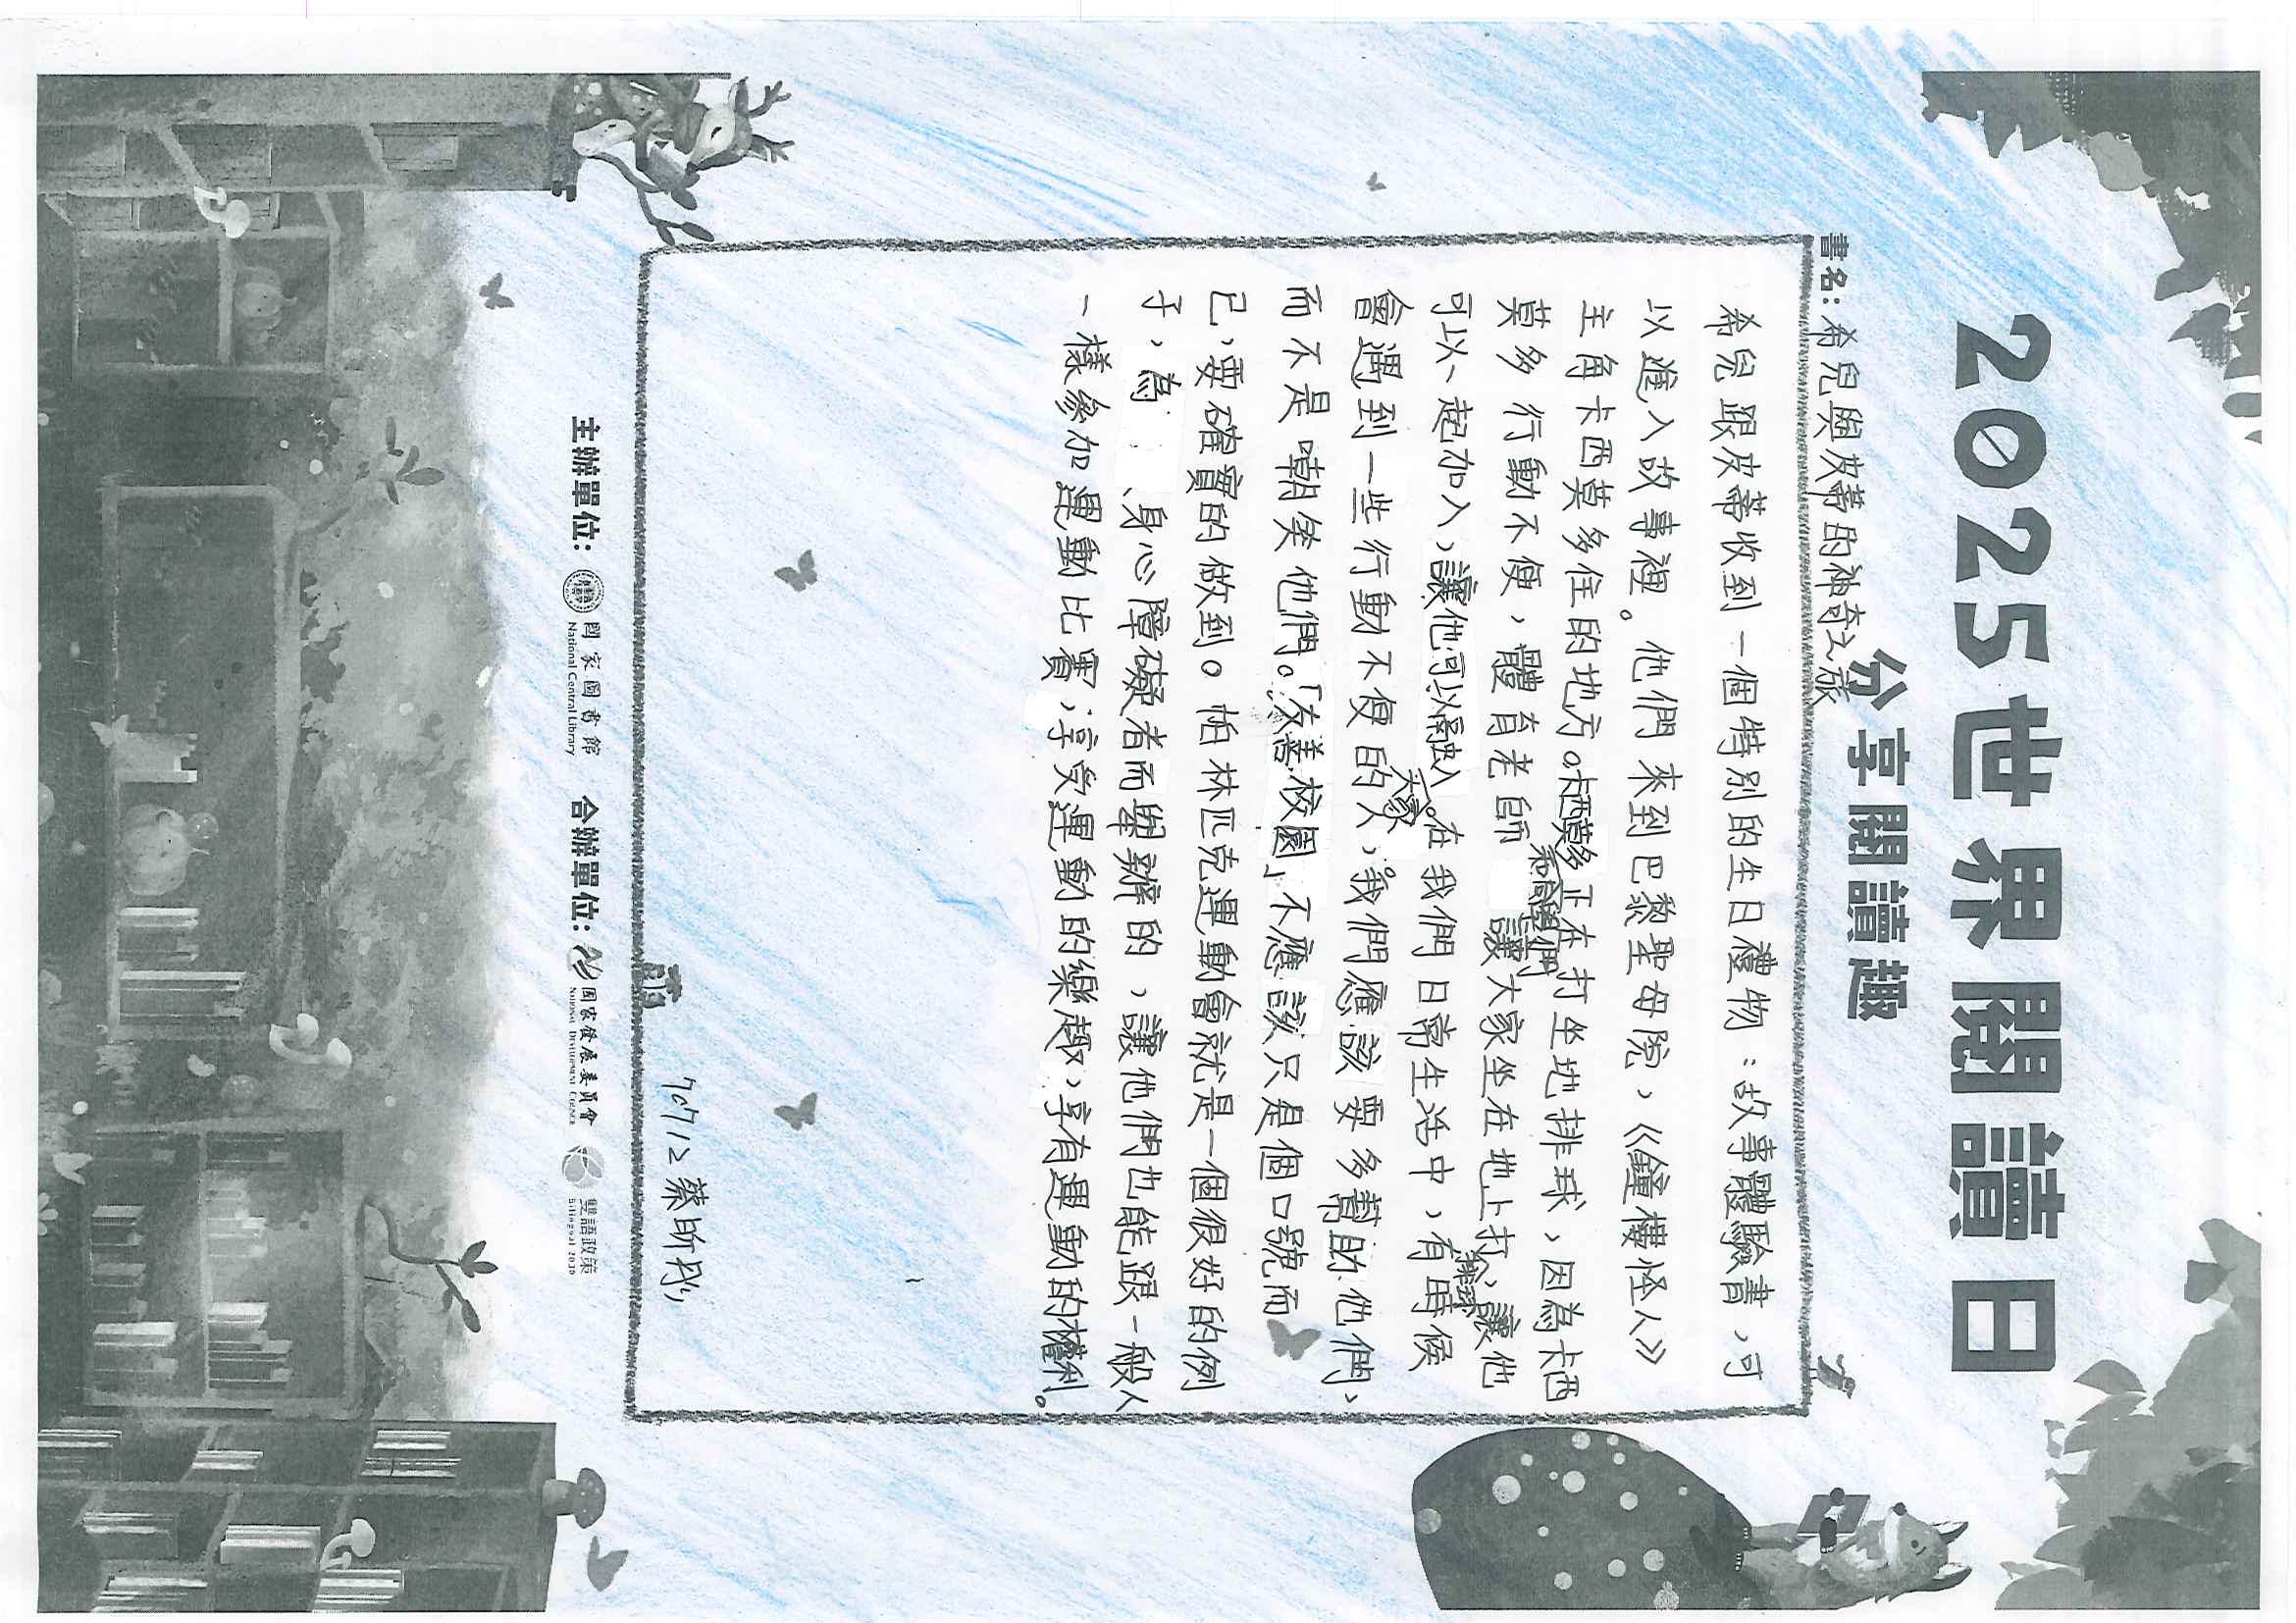 2025世界閱讀日
分享閱讀趣
書名：希兒與皮蒂的神奇之旅
希兒跟皮蒂收到一個特別的生日禮物：故事體驗書，可
以進入故事裡。他們來到巴黎聖母院，《鐘樓怪人》
主角卡西莫多住的地方。卡西莫多正在打坐地排球，因為卡西
莫多行動不便，體育老師和同學們讓大家坐在地上打排球，讓他
可以一起加入，讓他可以融入大家。在我們日常生活中，有時候
會遇到一些行動不便的人，我們應該要多幫助他們，
而不是嘲笑他們。「友善校園」不應該只是個口號而
已，要確實的做到。帕林匹克運動會就是一個很好的例
子，為、身心障礙者而舉辦的，讓他們也能跟一般人
一樣參加運動比賽，享受運動的樂趣，享有運動的權利。
70712蔡昕彤
主辦單位：國家圖書館 National Central Library 合辦單位：國家發展委員會 National Development Council 雙語政策 Bilingual 2030